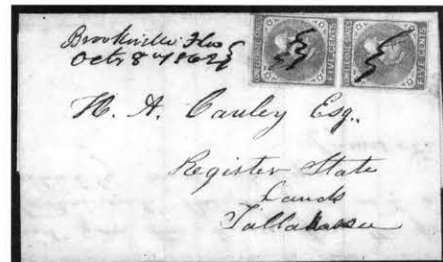 Brooksville Floa
Octr 8th 1862
FIVE CENTS
FIVE CENTS
H. A. Cauley Esq.
Register State
Lands
Tallahassee